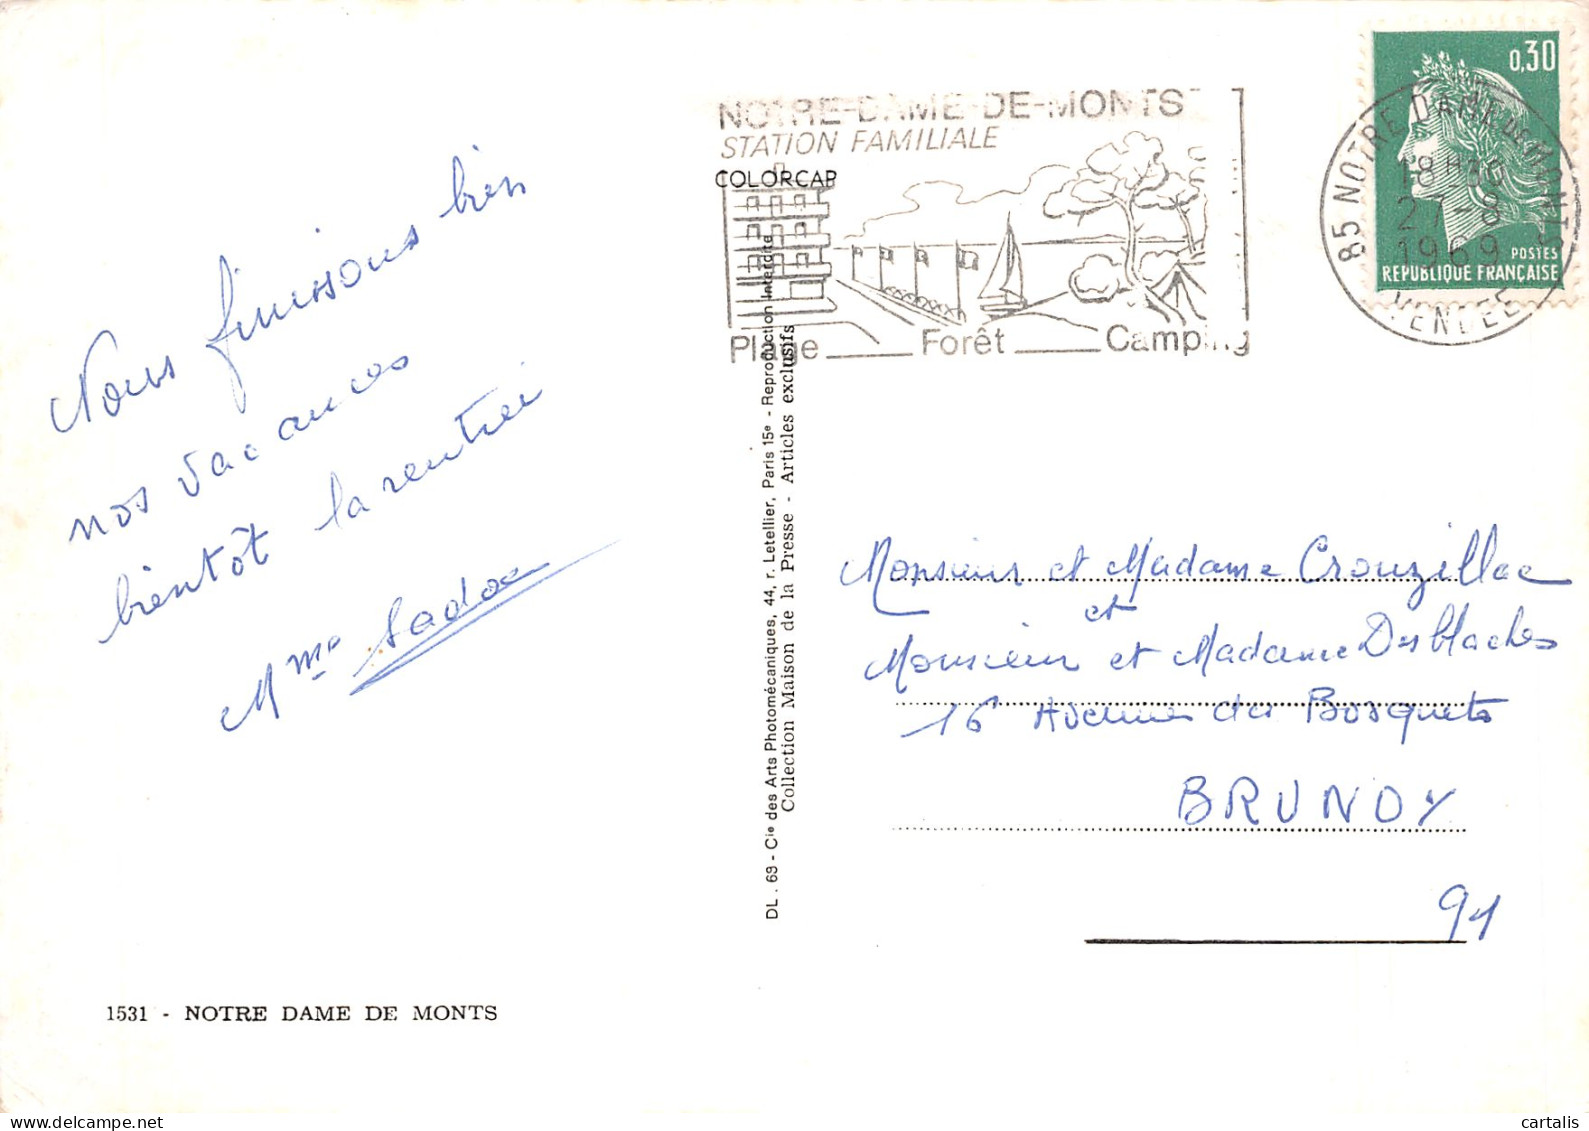 Nous finissons bien
nos vacances
bientôt la rentrée
Mme Sadoc
1531 - NOTRE DAME DE MONTS
COLORCAP
DL . 69 - Cie des Arts Photomécaniques, 44, r. Letellier, Paris 15e - Reproduction Interdite
Collection Maison de la Presse - Articles exclusifs
NOTRE-DAME-DE-MONTS
STATION FAMILIALE
Plage Forêt Camping
85 NOTRE DAME DE MONTS
18H30
27-8
1969
VENDEE
0,30
POSTES
REPUBLIQUE FRANÇAISE
Monsieur et Madame Crouzillac
et
Monsieur et Madame Desblaches
16 Avenue des Bosquets
BRUNOY
91
cartalis
delcampe.net